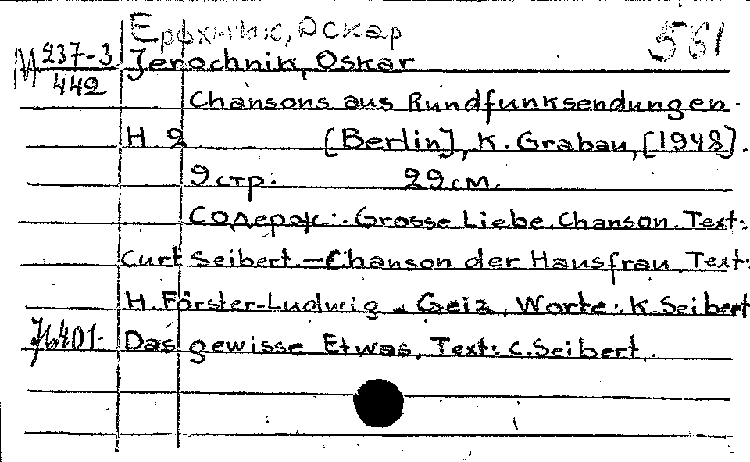 Ерохник, Оскар 561
М 237-3
442
Jerochnik, Oskar
Chansons aus Rundfunksendungen.
H. 2 [Berlin], K. Grabau, [1948].
9 стр. 29 см.
Содерж.: Grosse Liebe. Chanson. Text:
Curt Seibert. — Chanson der Hausfrau. Text:
H. Förster-Ludwig. Geiz. Worte: K. Seibert
401. Das gewisse Etwas. Text: C. Seibert.